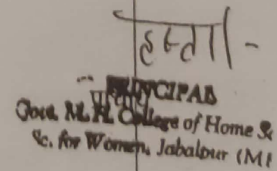 हस्ता/-
PRINCIPAL
Govt. M. H. College of Home &
Sc. for Women, Jabalpur (M